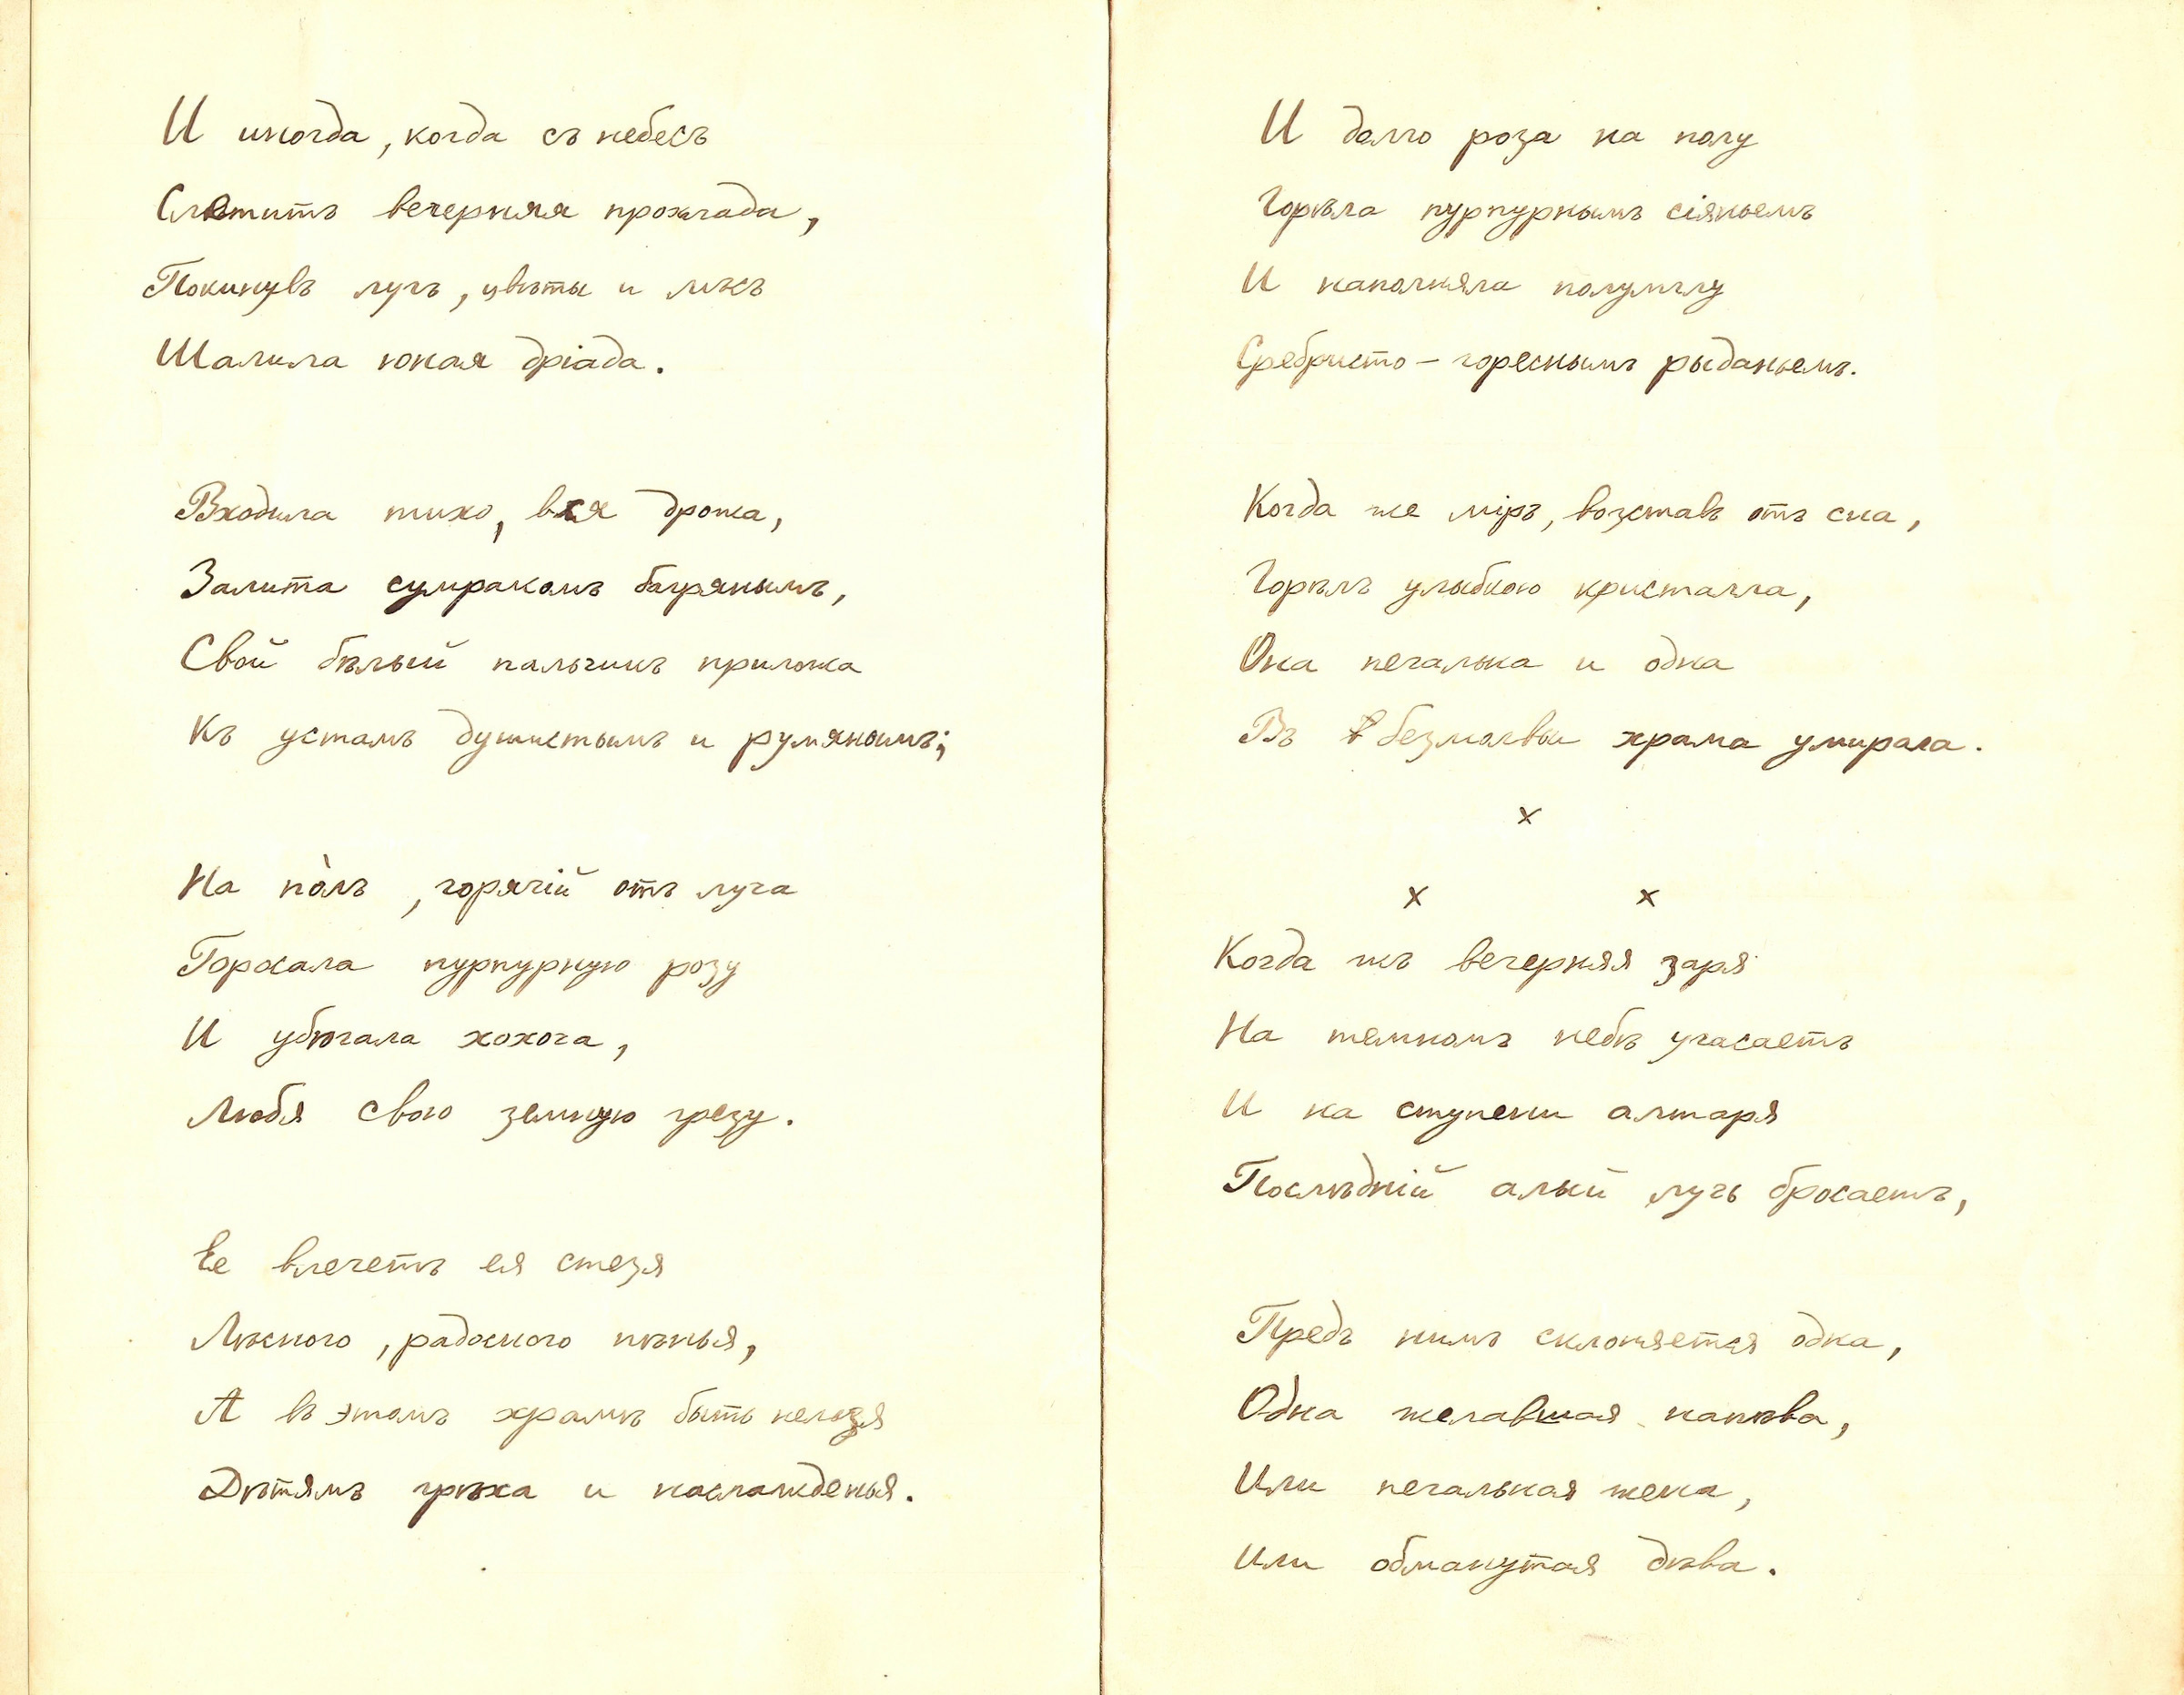 И иногда, когда съ небесъ
Слетитъ вечерняя прохлада,
Покинувъ лугъ, цвѣты и лѣсъ
Шалила юная дріада.
Входила тихо, вся дрожа,
Залита сумракомъ багрянымъ,
Свой бѣлый пальчикъ приложа
Къ устамъ душистымъ и румянымъ;
На по̀лъ, горячій отъ луча
Бросала пурпурную розу
И убѣгала хохоча,
Любя свою земную грезу.
Ее влечетъ ея стезя
Лѣсного, радосного пѣнья,
А въ этомъ храмѣ быть нельзя
Дѣтямъ грѣха и наслажденья.
И долго роза на полу
Горѣла пурпурнымъ сіяньемъ
И наполняла полумглу
Сребристо-гореснымъ рыданьемъ.
Когда же міръ, возставъ отъ сна,
Горѣлъ улыбкою кристалла,
Она печальна и одна
Въ безмолвьи храма умирала.
x
x x
Когда жъ вечерняя заря
На темномъ небѣ угасаетъ
И на ступени алтаря
Послѣдній алый лучъ бросаетъ,
Предъ нимъ склоняется одна,
Одна желавшая напѣва,
Или печальная жена,
Или обманутая дѣва.